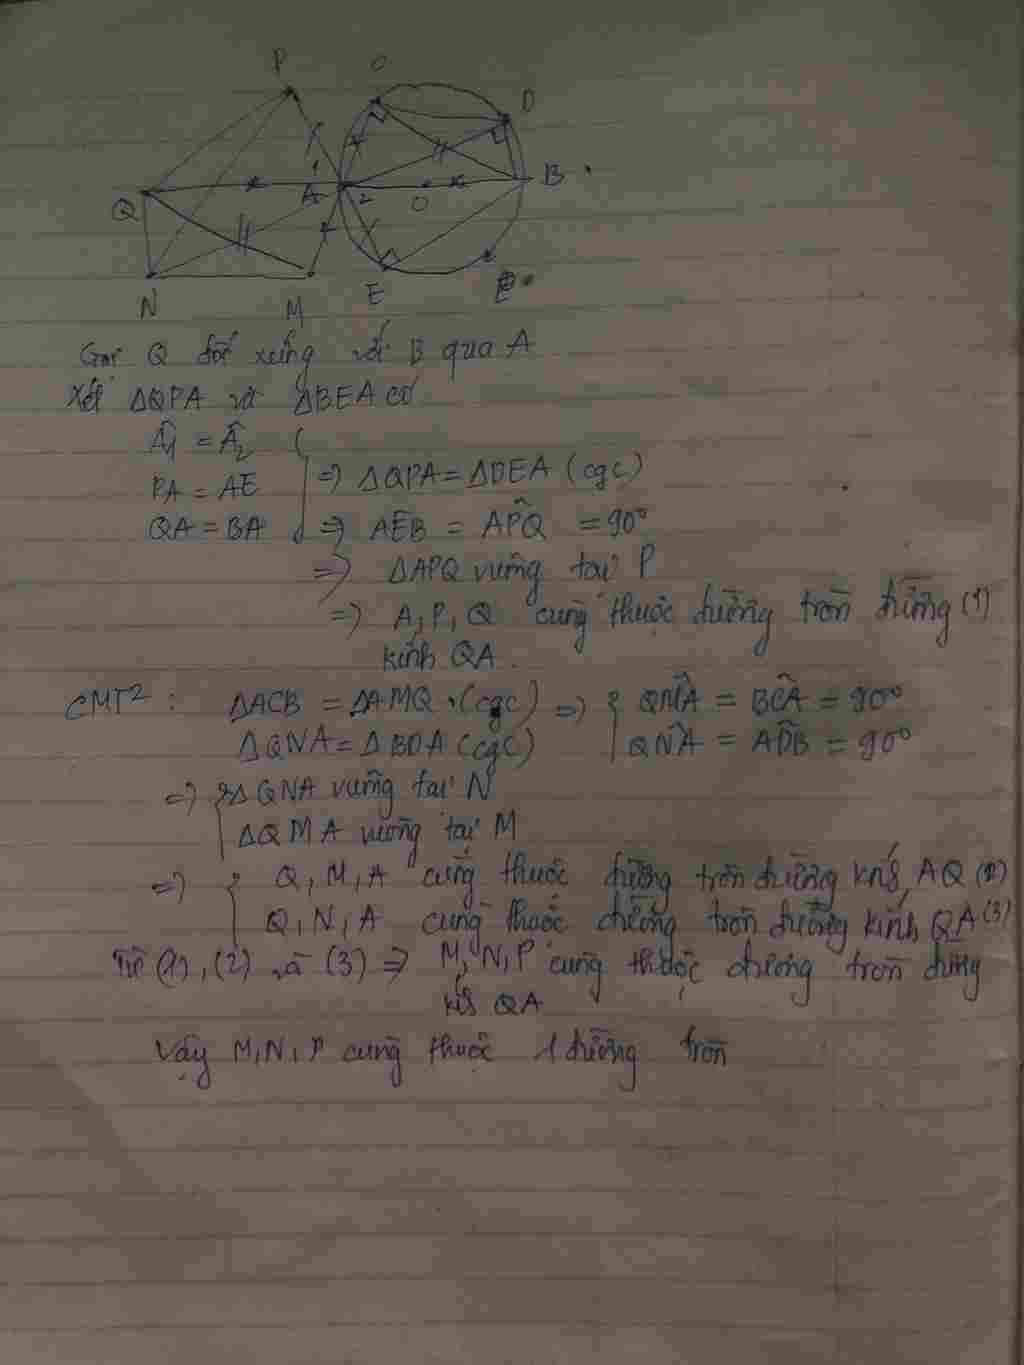 P C D
Q A 1 2 O B
N M E
Gọi Q đối xứng với B qua A
Xét ΔQPA và ΔBEA có
Â1 = Â2
PA = AE ⇒ ΔQPA = ΔBEA (cgc)
QA = BA ⇒ AÊB = AP̂Q = 90°
⇒ ΔAPQ vuông tại P
⇒ A, P, Q cùng thuộc đường tròn đường (1)
kính QA.
CMT² : ΔACB = ΔAMQ (cgc) ⇒ { QM̂A = BĈA = 90°
ΔQNA = ΔBDA (cgc) QN̂A = AD̂B = 90°
⇒ { ΔQNA vuông tại N
ΔQMA vuông tại M
⇒ { Q, M, A cùng thuộc đường tròn đường kính AQ (2)
Q, N, A cùng thuộc đường tròn đường kính QA (3)
Từ (1), (2) và (3) ⇒ M, N, P cùng thuộc đường tròn đường
kính QA
Vậy M, N, P cùng thuộc 1 đường tròn